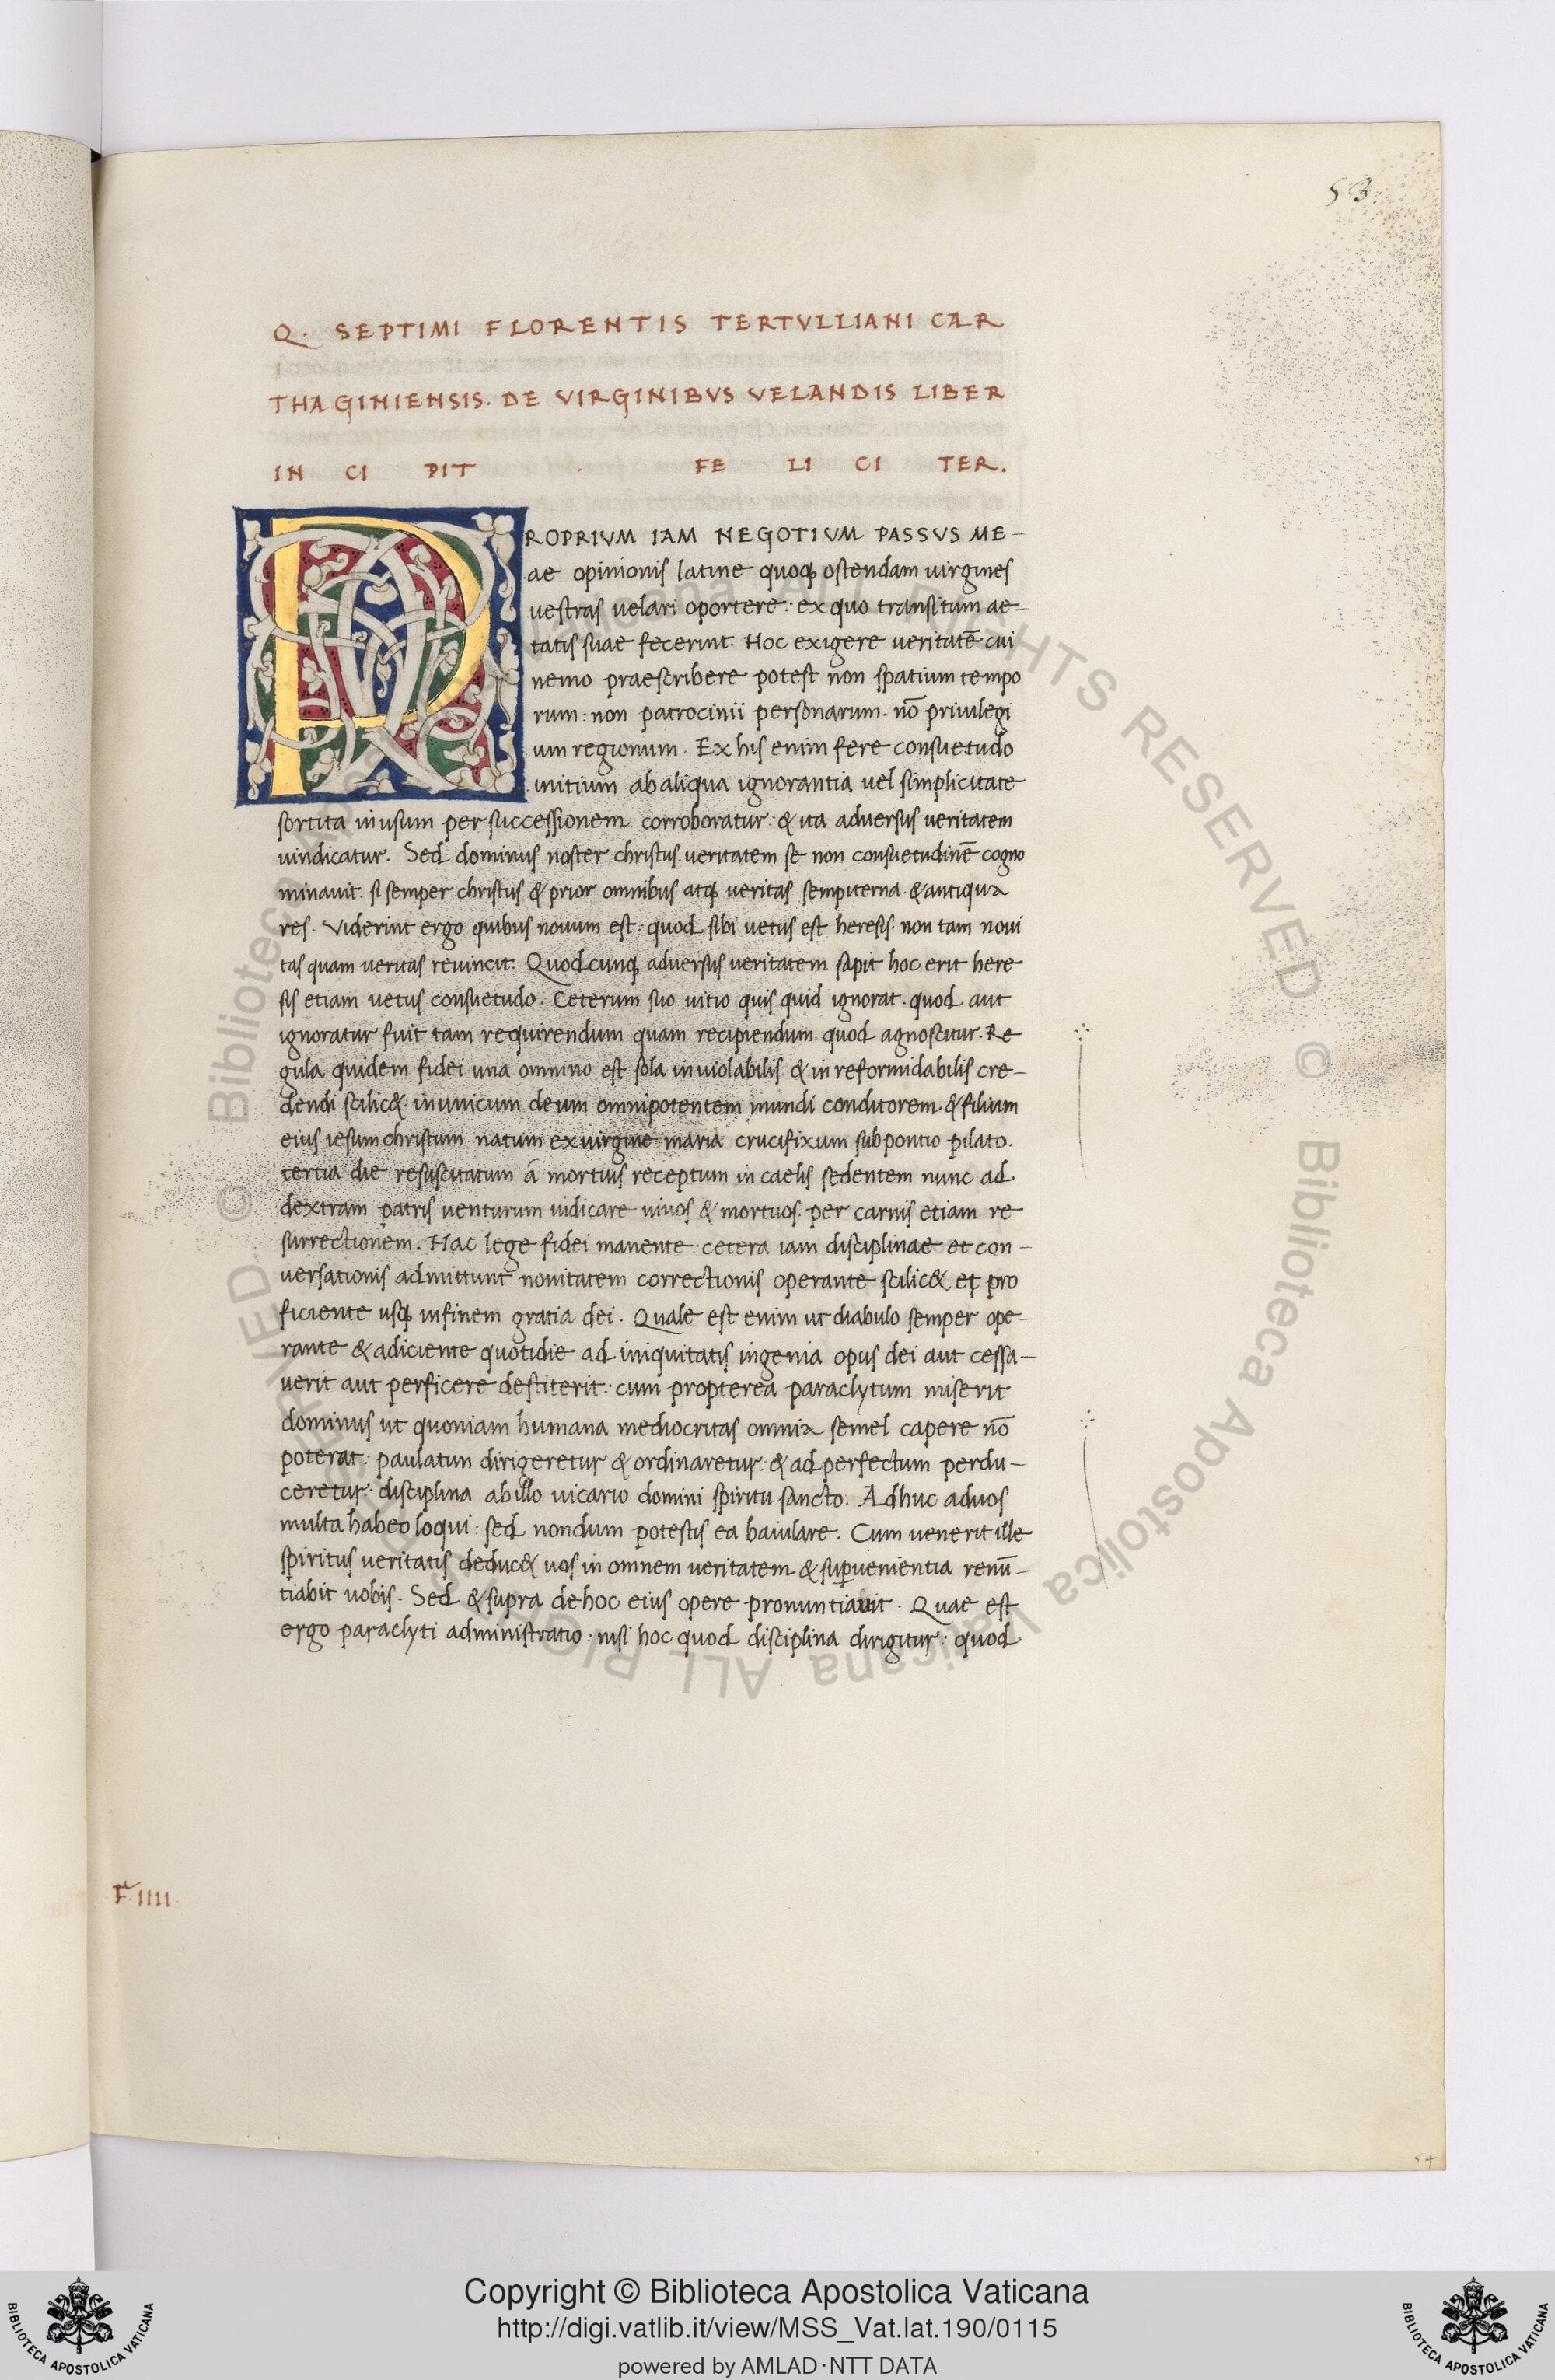 53.
Q. SEPTIMI FLORENTIS TERTVLLIANI CAR
THAGINIENSIS. DE VIRGINIBVS VELANDIS LIBER
IN CI PIT FE LI CI TER.
PROPRIVM IAM NEGOTIVM PASSVS ME-
ae opinionis latine quoq; ostendam uirgines
uestras uelari oportere: ex quo transitum ae-
tatis suae fecerint. Hoc exigere ueritatē cui
nemo praescribere potest non spatium tempo
rum: non patrocinii personarum. nō priuilegi
um regionum. Ex his enim fere consuetudo
initium ab aliqua ignorantia uel simplicitate
sortita in usum per successionem corroboratur: & ita aduersus ueritatem
uindicatur. Sed dominus noster christus ueritatem se non consuetudinē cogno
minauit. si semper christus & prior omnibus atq; ueritas sempiterna. & antiqua
res. Viderint ergo quibus nouum est: quod sibi uetus est heresis. non tam noui
tas quam ueritas reuincit. Quodcunq; aduersus ueritatem sapit hoc erit here
sis etiam uetus consuetudo. Ceterum suo uitio quis quid ignorat. quod aut
ignoratur fuit tam requirendum quam recipiendum quod agnoscitur. Re
gula quidem fidei una omnino est sola inuiolabilis & inreformidabilis cre-
dendi scilic& in unicum deum omnipotentem mundi conditorem & filium
eius iesum christum natum ex uirgine maria crucifixum sub pontio pilato.
tertia die resuscitatum á mortuis receptum in caelis sedentem nunc ad
dextram patris uenturum iudicare uiuos & mortuos per carnis etiam re
surrectionem. Hac lege fidei manente cetera iam disciplinae et con-
uersationis admittunt nouitatem correctionis operante scilic& et pro
ficiente usq; in finem gratia dei. Quale est enim ut diabulo semper ope-
rante & adiciente quotidie ad iniquitatis ingenia opus dei aut cessa-
uerit aut perficere destiterit: cum propterea paraclytum miserit
dominus ut quoniam humana mediocritas omnia semel capere nō
poterat: paulatim dirigeretur & ordinaretur: & ad perfectum perdu-
ceretur disciplina ab illo uicario domini spiritu sancto. Adhuc ad uos
multa habeo loqui: sed nondum potestis ea baiulare. Cum uenerit ille
spiritus ueritatis deduc& uos in omnem ueritatem & superuenientia renū-
tiabit uobis. Sed & supra de hoc eius opere pronuntiauit. Quae est
ergo paraclyti administratio: nisi hoc quod disciplina dirigitur: quod
F. IIII
54
© Biblioteca Apostolica Vaticana ALL RIGHTS RESERVED © Biblioteca Apostolica Vaticana ALL RIGHTS RESERVED
Copyright © Biblioteca Apostolica Vaticana
http://digi.vatlib.it/view/MSS_Vat.lat.190/0115
powered by AMLAD·NTT DATA
BIBLIOTECA APOSTOLICA VATICANA
BIBLIOTECA APOSTOLICA VATICANA